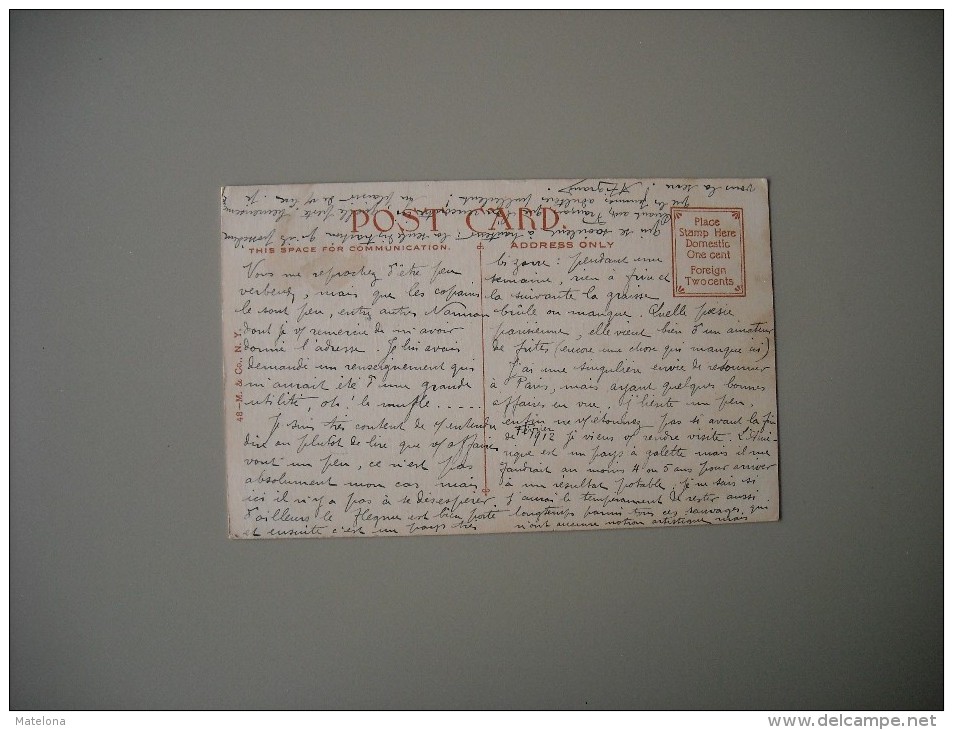 POST CARD
THIS SPACE FOR COMMUNICATION.
ADDRESS ONLY
Place
Stamp Here
Domestic
One cent
Foreign
Two cents
48–M. & Co., N.Y.
Vous me reprochez d'être peu
verbeux, mais que les copains
le sont peu, entre autres
dont je vs remercie de m'avoir
donné l'adresse. Je lui avais
demandé un renseignement qui
m'aurait été d'une grande
utilité, oh! le mufle.....
Je suis très content de vs entendre
dire ou plutôt de lire que vs affaires
vont un peu, ce n'est pas
absolument mon cas mais
ici il n'y a pas à se désespérer
d'ailleurs le flegme est bien porté
et ensuite c'est un pays très
bizarre: pendant une
semaine, rien à frire et
la suivante la graisse
brûle ou manque. Quelle poésie
parisienne, elle vient bien d'un amateur
de frites (encore une chose qui manque ici)
J'ai une singulière envie de retourner
à Paris, mais ayant quelques bonnes
affaires en vue, j'hésite un peu,
enfin ne vs étonnez pas si avant la fin
de février 1912 je viens vs rendre visite. L'Amé-
rique est un pays à galette mais il me
faudrait au moins 4 ou 5 ans pour arriver
à un résultat potable, je ne sais si
j'aurai le tempérament de rester aussi
longtemps parmi tous ces sauvages, qui
n'ont aucune notion artistique mais
qui se
vous la serre.